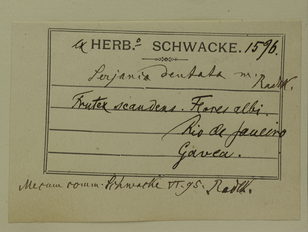 ex HERB.º SCHWACKE. 1596.
Serjania dentata m. Radlk.
Frutex scandens. Flores albi.
Rio de Janeiro
Gavea.
Mecum comm. Schwacke VI. 95. Radlk.